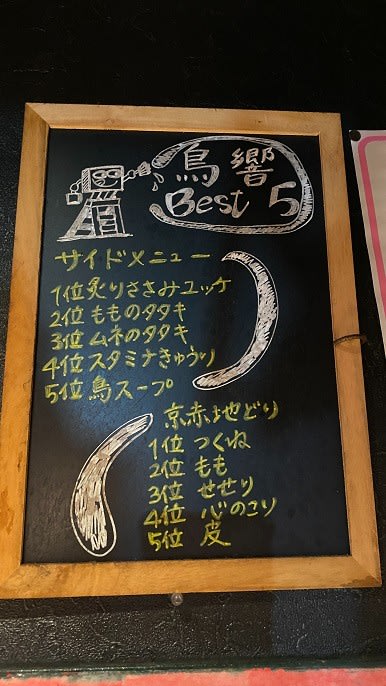 鳥響
Best 5
サイドメニュー
1位 炙りささみユッケ
2位 もものタタキ
3位 ムネのタタキ
4位 スタミナきゅうり
5位 鳥スープ
京赤地どり
1位 つくね
2位 もも
3位 せせり
4位 心のこり
5位 皮